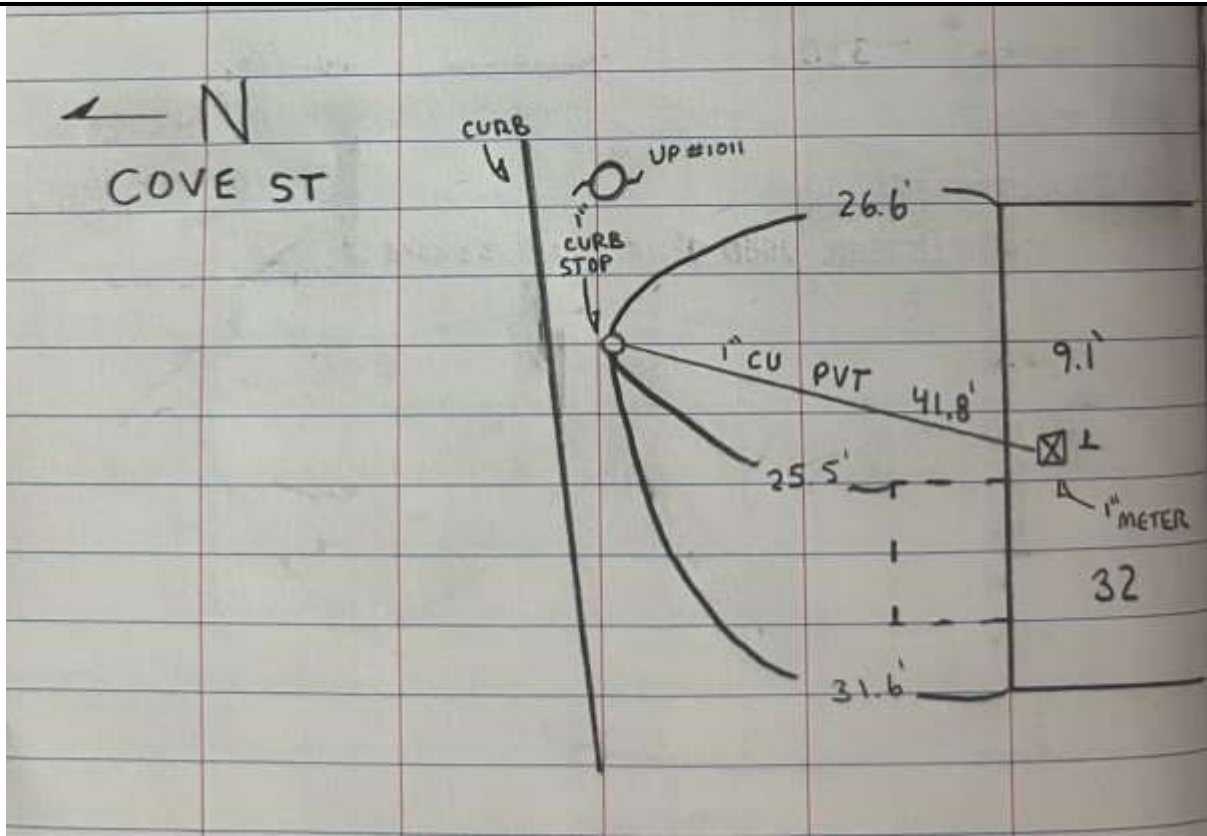 N
COVE ST
CURB
UP #1011
1"
CURB
STOP
26.6'
1" CU PVT 41.8'
9.1'
25.5'
1" METER
32
31.6'